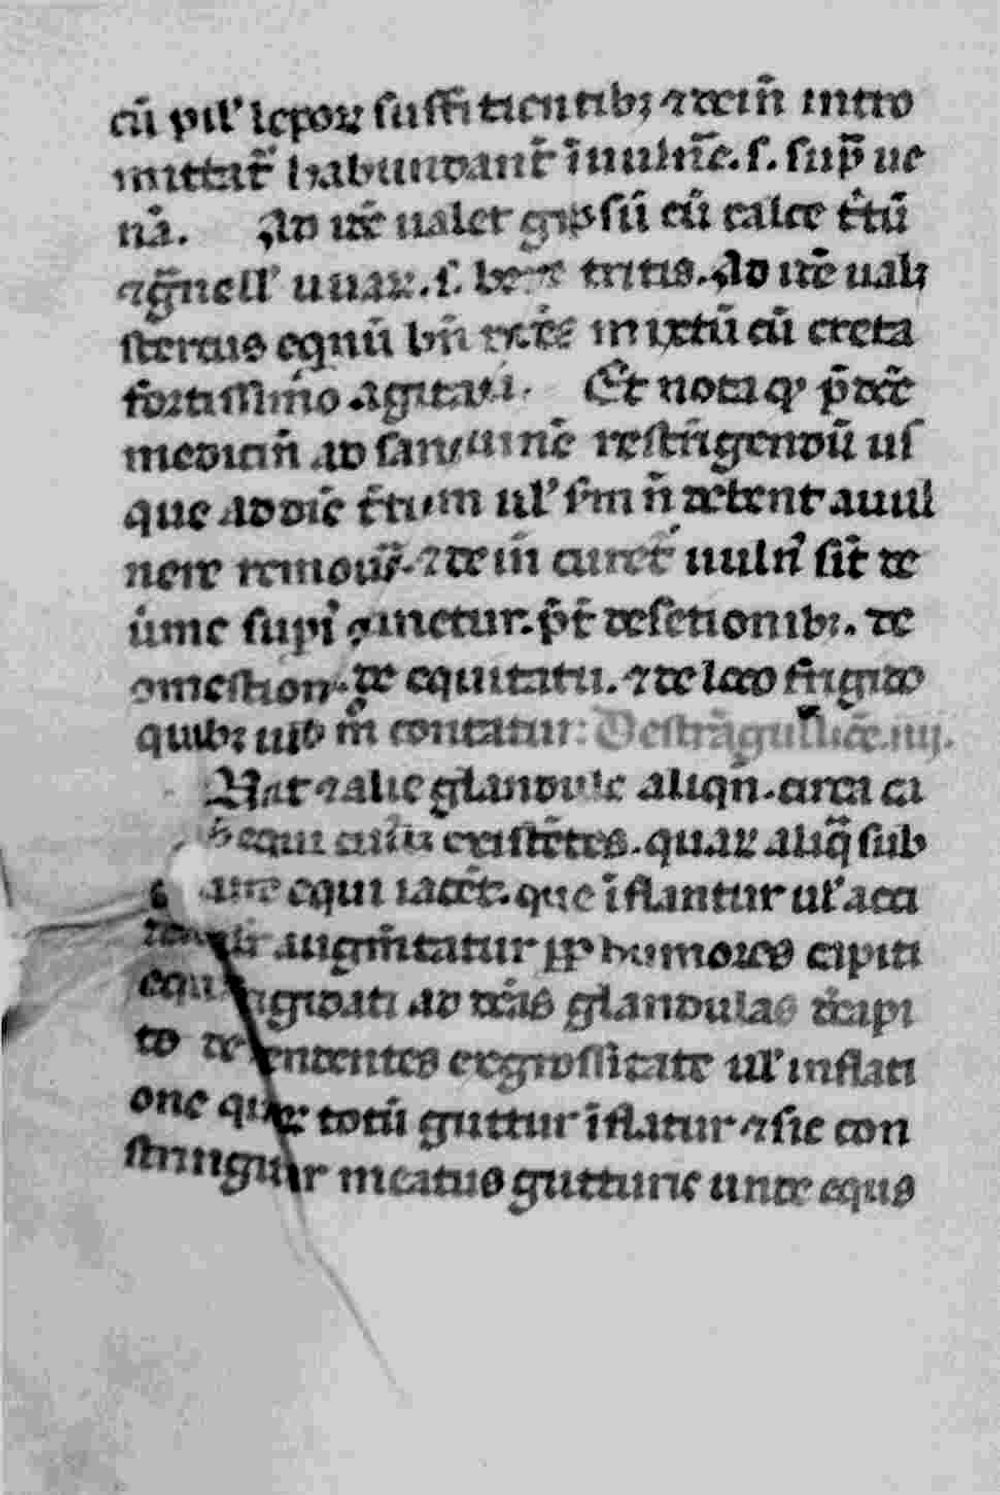 cū pil' lepoꝝ suffitientibꝫ ⁊ dein̄ intro
mittat᷑ habundant᷑ ī uuln̄e. s. sup̄ ue
nā. Ad idē ualet gipsū cū calce t̄tū
⁊ g̃nell' uuaꝝ. s. tritis. Ad idē ualꝫ
stercus equinū bn̄ mixtū cū creta
fortissimo agitari. Et nota qd' p̄dcē
medicin̄ ad sanguinē restrīgendū us
que ad diē t̄tium ul' s̄m n̄ debent a uul
nere remoueri. ⁊ dein̄ curet᷑ uuln' sic̄ de
uime supi' cinetur. p̄t de setionibꝫ. de
omestion. de equitatu. ⁊ de loco frigido
quibꝫ uitio m̄ contatur: De strāgullicē. iiij.
Nat ⁊ alie glandule aliqn̄. circa ca
equi existētes. quaꝝ aliq̄ sub
equi iacēt. que īflantur ul' acci
augm̄tatur ꝑꝑ humores capiti
equi ad dc̄as glandulas d'capi
to dessendentes ex grossitate ul' inflati
one quaꝝ totū guttur īflatur ⁊ sic con
stringuntur meatus gutturis unde equs